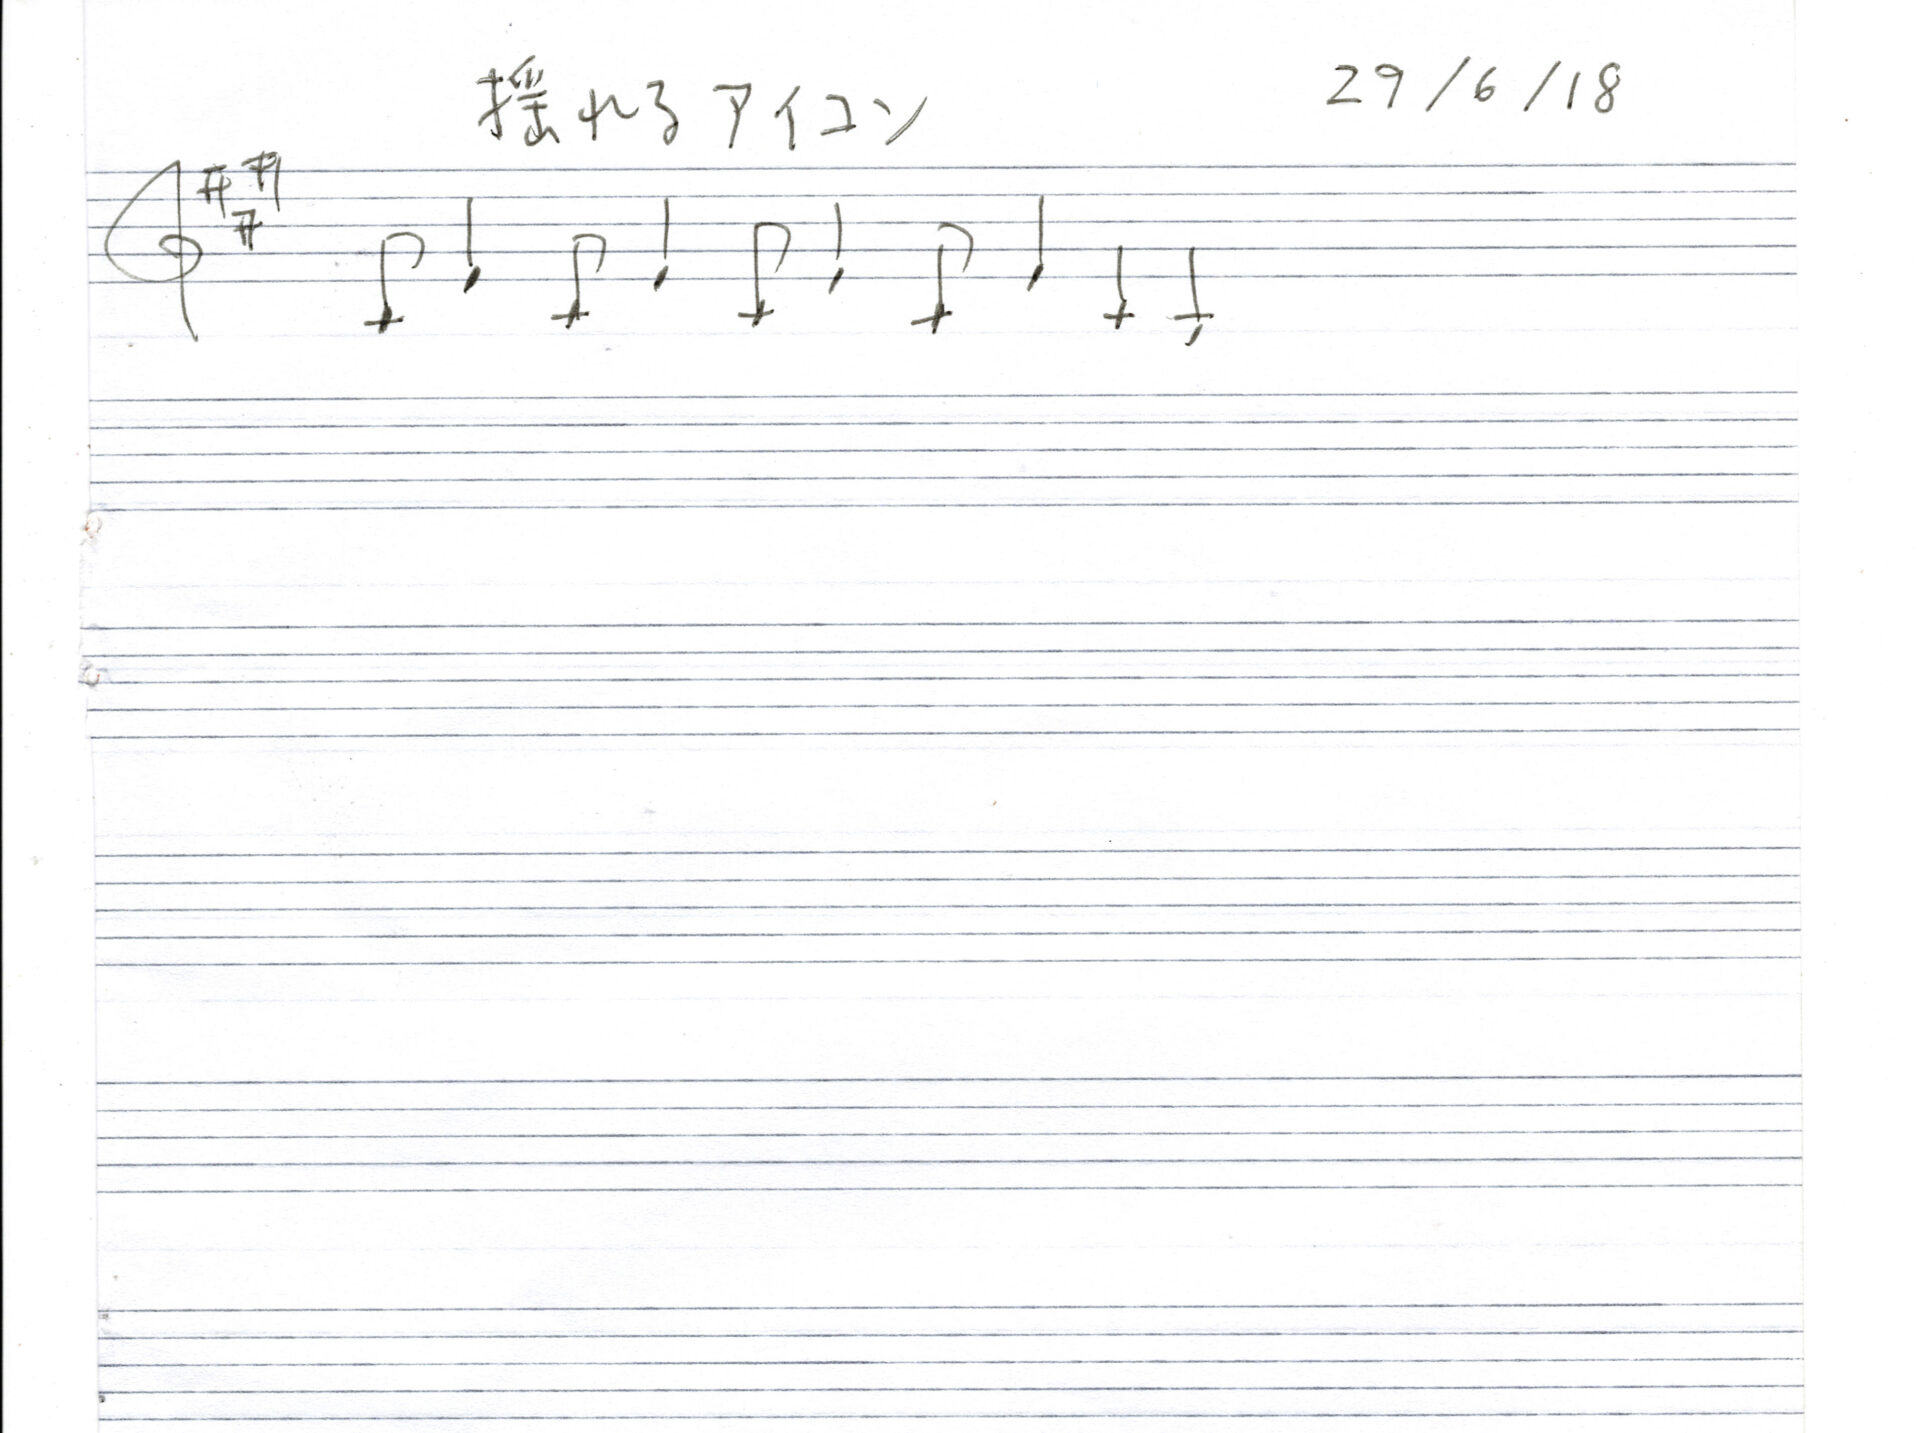 揺れるアイコン 29/6/18